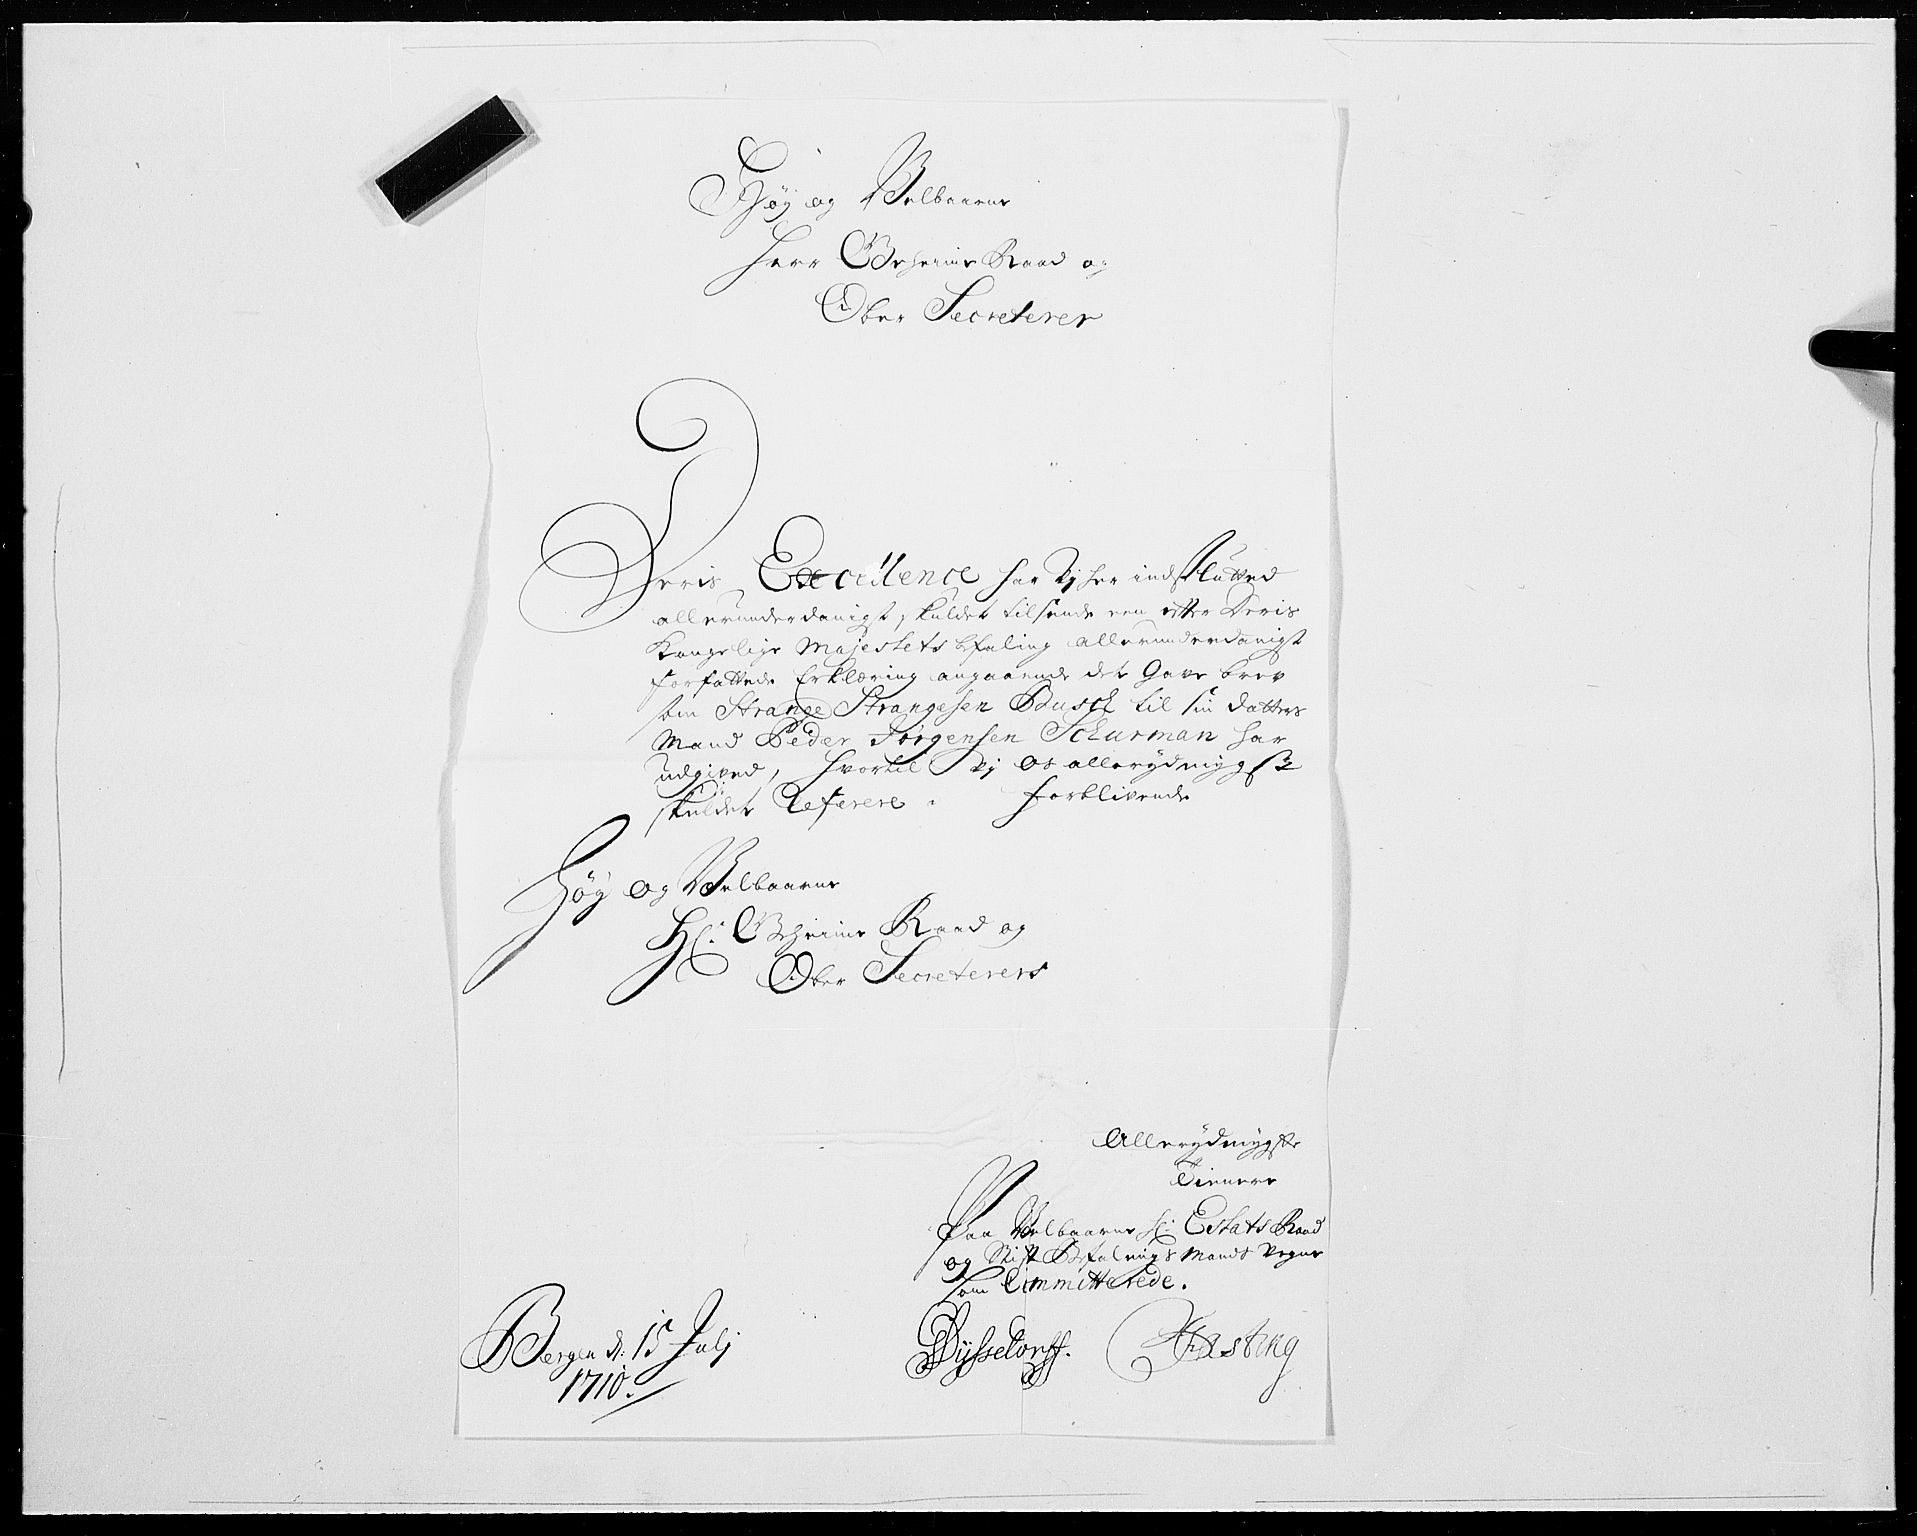 Høy og Velbaarne
Herr Geheime Raad og
Ober Secreterer
Deris Excellence har Vj her indslutted
allerunderdanigst skuldet tilsende een efter Deris
Kongelige Majestets befaling allerunderdanigst
forfattede Erklæring angaaende det Gave brev
som Strange Strangesen Busch til sin datters
Mand Peder Jørgensen Schurman har
udgived, hvortil Vj os allerydmygst
skuldet Referere. forblivende
Høy og Velbaarne
Hr: Geheime Raad og
Ober Secreterers
Allerydmygste
Tienere
Paa Velbaarne Hr: Estats Raad
og Stift Befalnings Mands Vegne
som Committerede.
Bergen d: 15 Julj
1710.